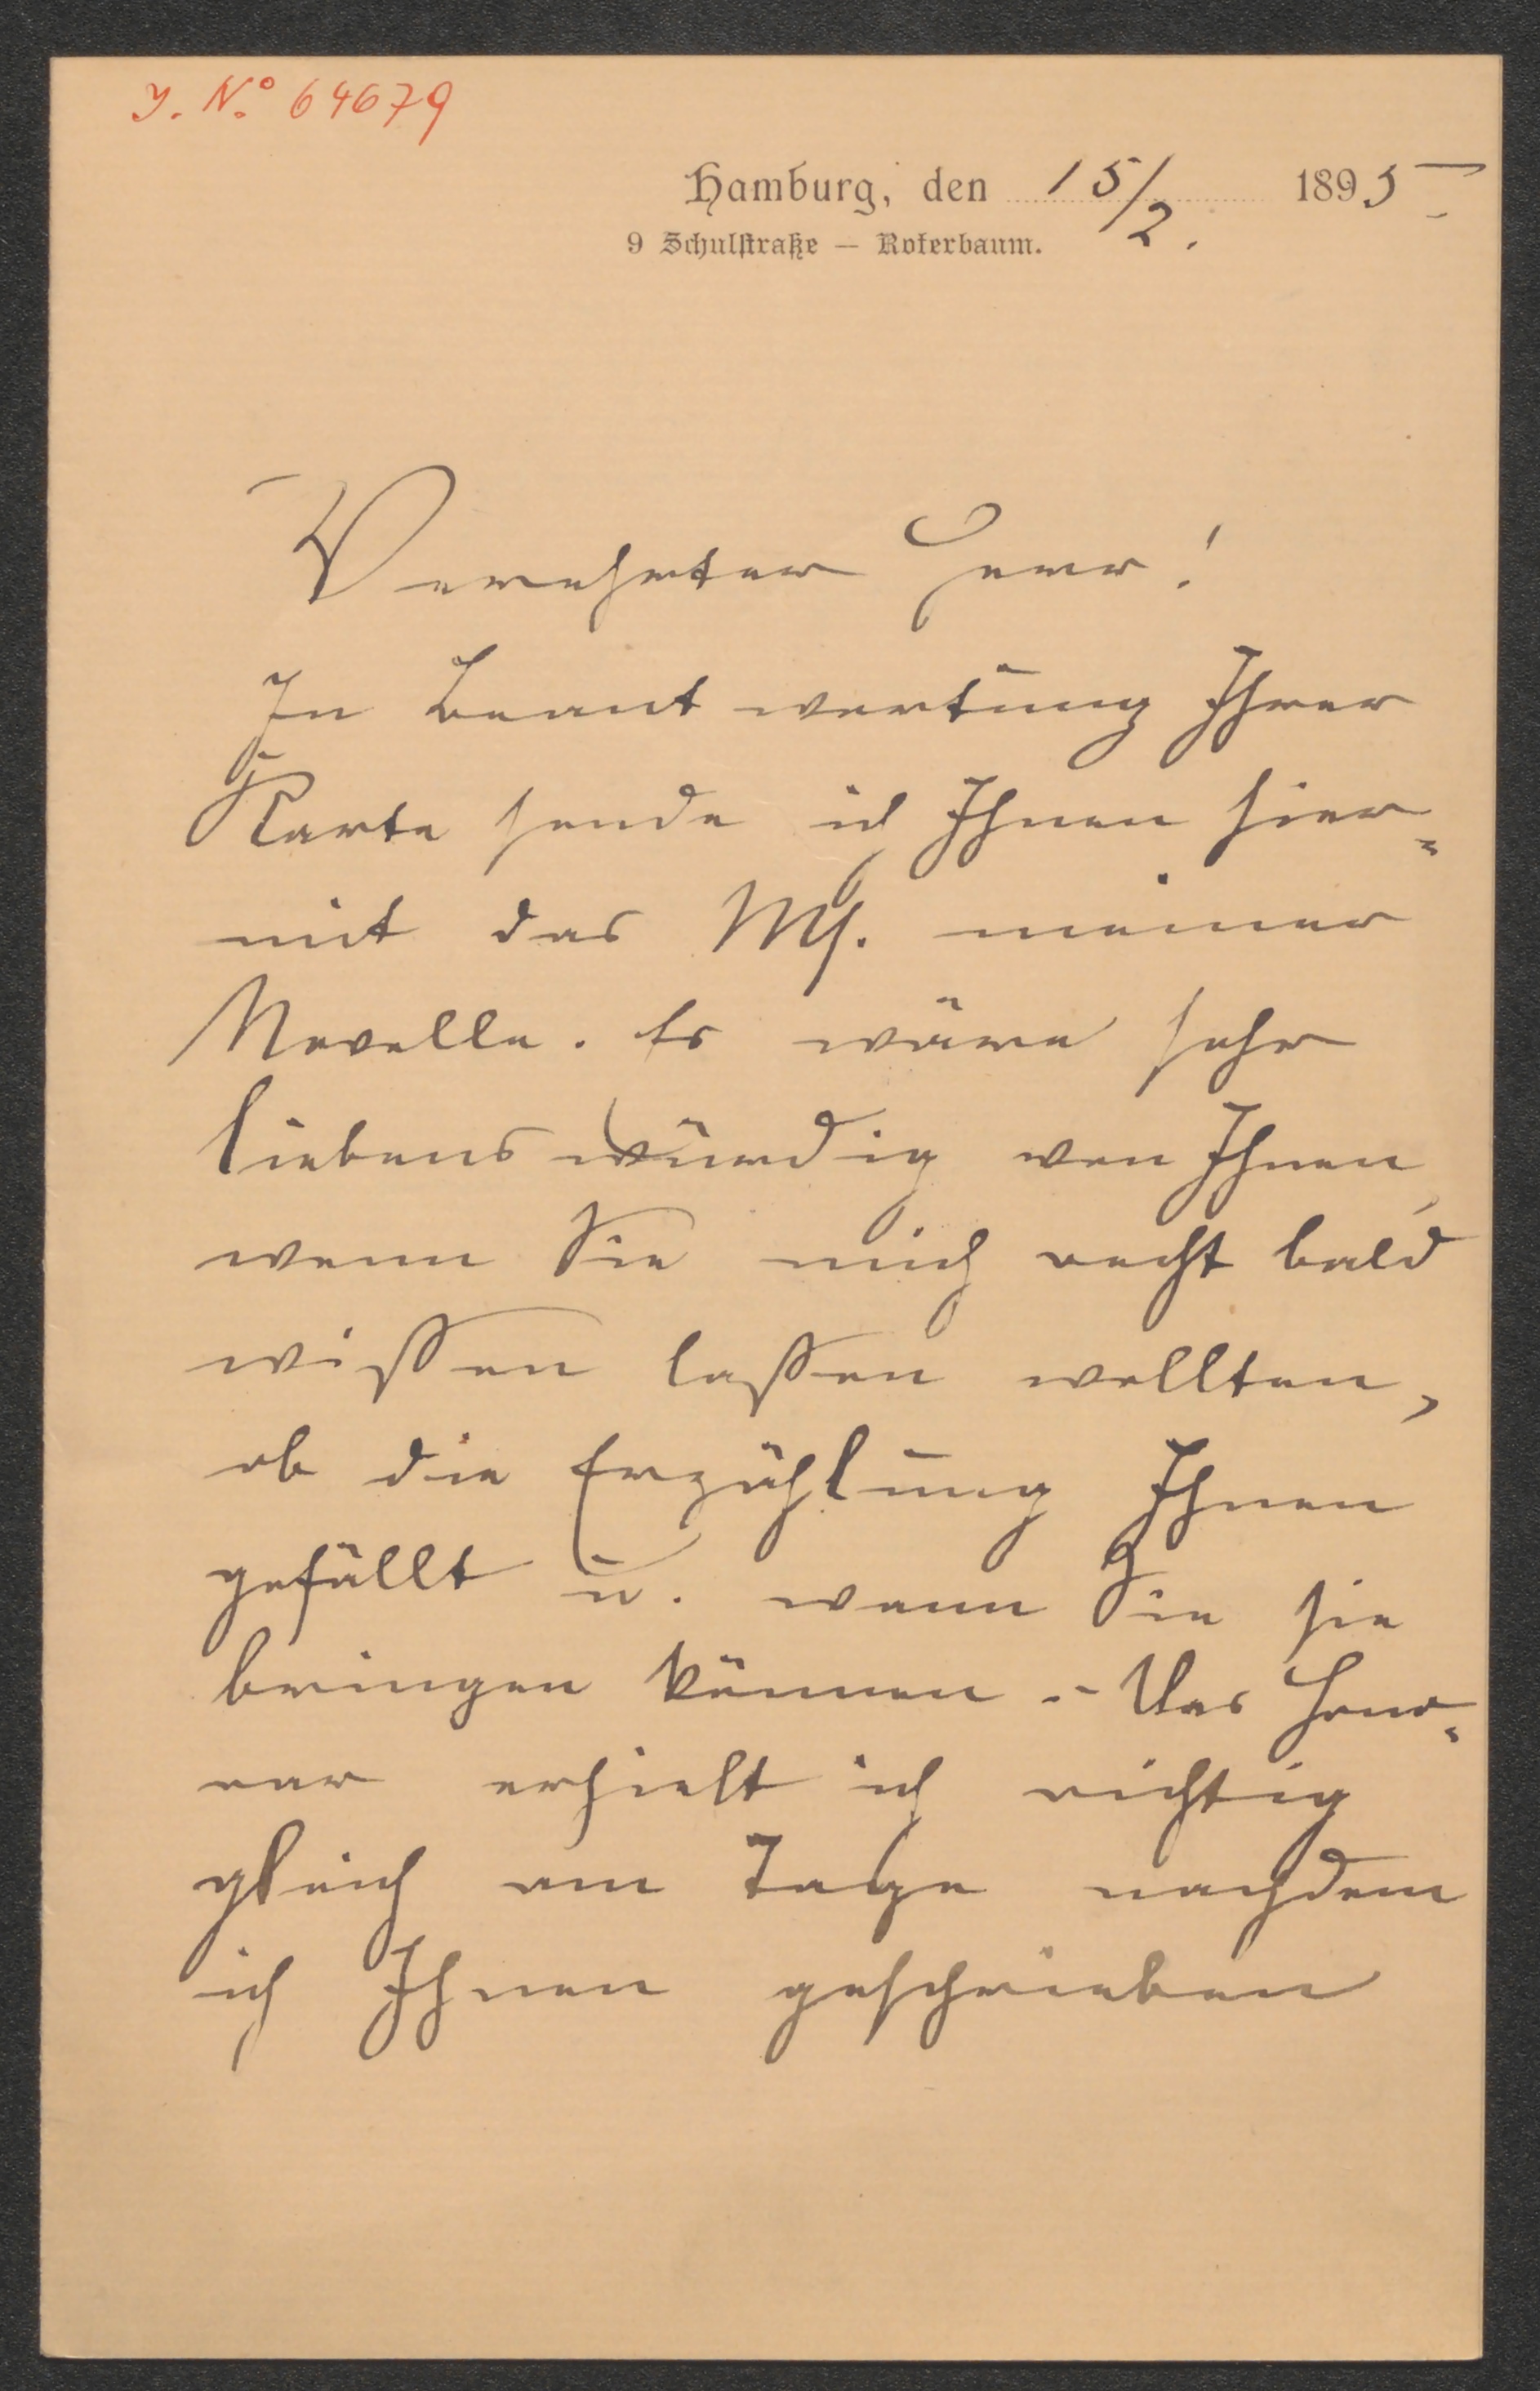 J. N.o 64679
Hamburg, den 15/2. 1895
9 Schulstraße — Roterbaum.
Verehrter Herr!
In Beantwortung Ihrer
Karte sende ich Ihnen hier=
mit das Ms. meiner
Novelle. Es wäre sehr
liebenswürdig von Ihnen,
wenn Sie mich recht bald
wißen laßen wollten,
ob die Erzählung Ihnen
gefällt u. wann Sie sie
bringen können. – Das Hono=
rar erhielt ich richtig
gleich am Tage nachdem
ich Ihnen geschrieben